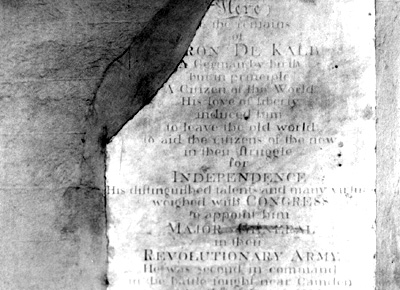 Here
the remains
of
RON DE KALB
A German by birth
but in principle
A Citizen of the World
His love of liberty
induced him
to leave the old world
to aid the citizens of the new
in their struggle
for
INDEPENDENCE
His distinguished talents and many virtues
weighed with CONGRESS
to appoint him
MAJOR GENERAL
in their
REVOLUTIONARY ARMY
He was second in command
in the battle fought near Camden